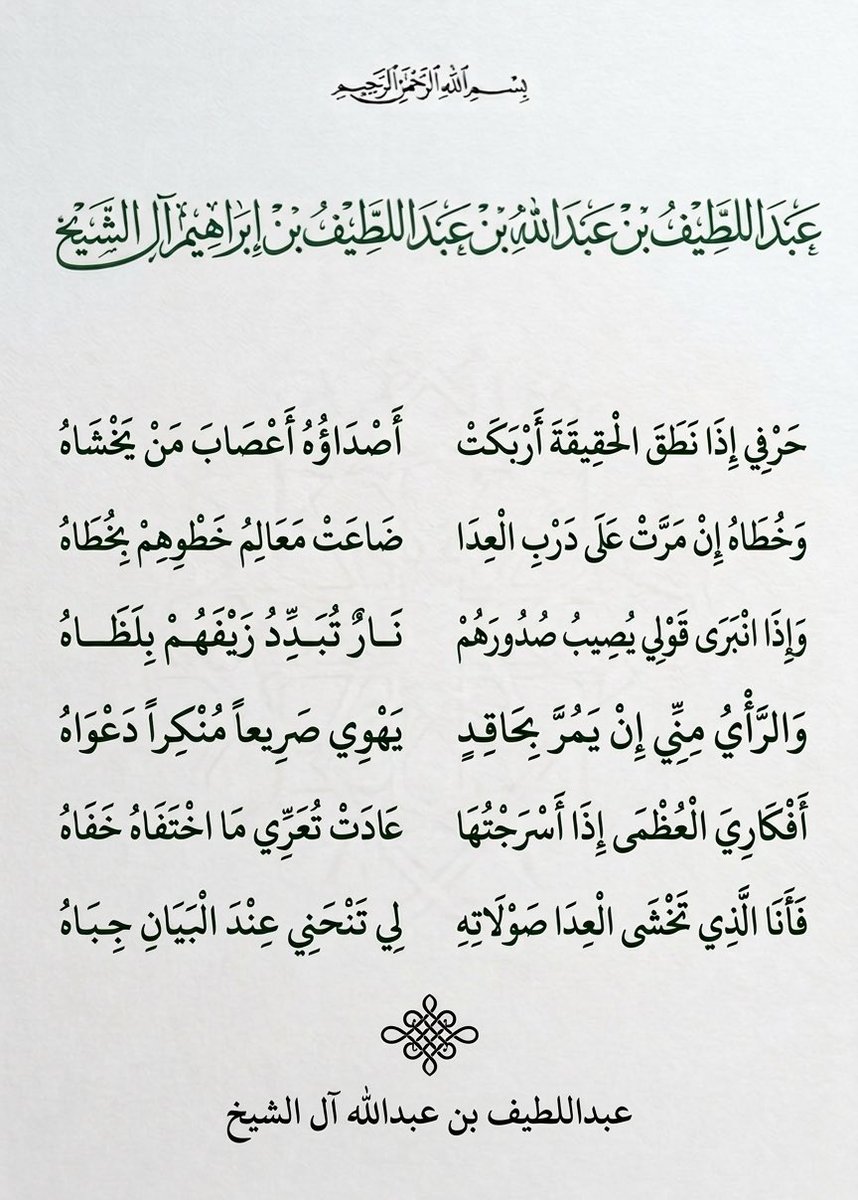 بِسْمِ اللهِ الرَّحْمٰنِ الرَّحِيمِ
عَبْدَاللَّطِيْفُ بْنْ عَبْدَاللهُ بْنْ عَبْدَاللَّطِيْفُ بْنْ إِبْرَاهِيْمْ آل الشَّيْخ
حَرْفِي إِذَا نَطَقَ الْحَقِيقَةَ أَرْبَكَتْ أَصْدَاؤُهُ أَعْصَابَ مَنْ يَخْشَاهُ
وَخُطَاهُ إِنْ مَرَّتْ عَلَى دَرْبِ الْعِدَا ضَاعَتْ مَعَالِمُ خَطْوِهِمْ بِخُطَاهُ
وَإِذَا انْبَرَى قَوْلِي يُصِيبُ صُدُورَهُمْ نَــارٌ تُبَــدِّدُ زَيْفَهُــمْ بِلَظَــاهُ
وَالرَّأْيُ مِنِّي إِنْ يَمُرَّ بِحَاقِـدٍ يَهْوِي صَرِيعاً مُنْكِراً دَعْوَاهُ
أَفْكَارِيَ الْعُظْمَى إِذَا أَسْرَجْتُهَا عَادَتْ تُعَرِّي مَا اخْتَفَاهُ خَفَاهُ
فَأَنَا الَّذِي تَخْشَى الْعِدَا صَوْلَاتِهِ لِي تَنْحَنِي عِنْدَ الْبَيَانِ جِبَـاهُ
عبداللطيف بن عبدالله آل الشيخ